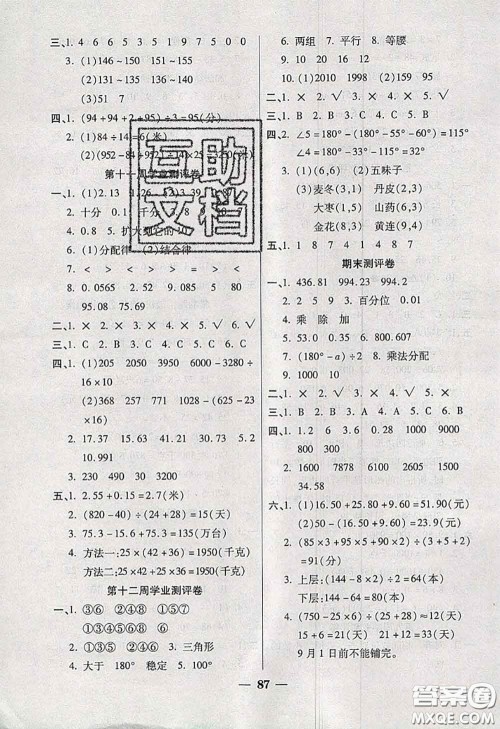 三、1. 4 6 6 5 3 5 1 9 7 5 0 0
3. (1)146~150 151~155
(2)131~135 136~140
(3)51 7
四、1. (94+94+2+95)÷3=95(分)
2. (1)84÷14=6(米)
(2)(952-84
第十一周学业测评卷
一、1. (1)2.01 1.26
2. 十分 0.1
4. 0.8 5. 扩大
6. (1)分配律 (2)结合律
7. < > < > < >
8. 0.0565 2.82 50 9 0.52
95.08 75.69
二、1. × 2. × 3. × 4. × 5. √ 6. √
三、1. C 2. C 3. B 4. A 5. C
四、1. (1)205 2050 3950 6000-3280÷
16×10
(2)368 257 771 1028-(625-23
×16)
2. 17.37 15.3 13.41 6.2
10.991
3. 230 490 3000 430
五、1. 2.55+0.15=2.7(米)
2. (820-40)÷(24+28)=15(天)
3. 75.3-15.6+75.3=135(万台)
4. 方法一:25×(42+36)=1950(千克)
方法二:25×42+25×36=1950(千克)
第十二周学业测评卷
一、1. ③⑥ ②④⑧ ①⑤⑦
①③④⑤⑥ ②⑦⑧
2. ①③⑥ ②④⑤ 3. 三角形
4. 大于 180° 稳定 5. 100°
6. 两组 7. 平行 8. 等腰
9. 10 20 16 12
10. (1)2010 1998 (2)159 95
二、1. × 2. √ 3. × 4. × 5. √
三、1. C 2. B 3. B 4. A 5. C 6. B
四、2. ∠5=180°-(180°-55°-60°)=115°
∠4=180°-(180°-115°)=115°
3. (1)(4,2) (2)五味子
(3)麦冬(3,1) 丹皮(2,1)
大枣(1,5) 山药(1,3)
金花(8,3) 黄连(9,1)
五、1. 0 1 7 4 1 4 8 7
期末测评卷
一、1. 436.81 994.23 994.2
2. 2 5 9 3. 百分位 0.01
4. 乘 除 加
5. 53.0 0.35 6. 800.607
7. (180°-a)÷2 8. 乘法分配
9. 1000 10
二、1. × 2. √ 3. × 4. √ 5. √
三、1. B 2. B 3. A 4. A 5. C 6. B
四、1. 1.2 6 3.6 0.28 1000 9
800 300
2. 1600 7878 1600 230
8. 4235 50 46 6.56
六、1. (1)16.50+25.80+9.60=51.90(元)
(2)50-(16.50+24.20)=9.30(元)
2. (85×3+95×5+90×2)÷(3+5+2)
=91(分)
3. 上层:(144-8)÷2=68(本)
下层:144-68=76(本)
4. (750-25×6)÷(25+15)=15(天)
15+6=21(天) 31-12+1=20(天)
9月1日前不能铺完。
87
互助
文档
答案圈
MXQE.COM